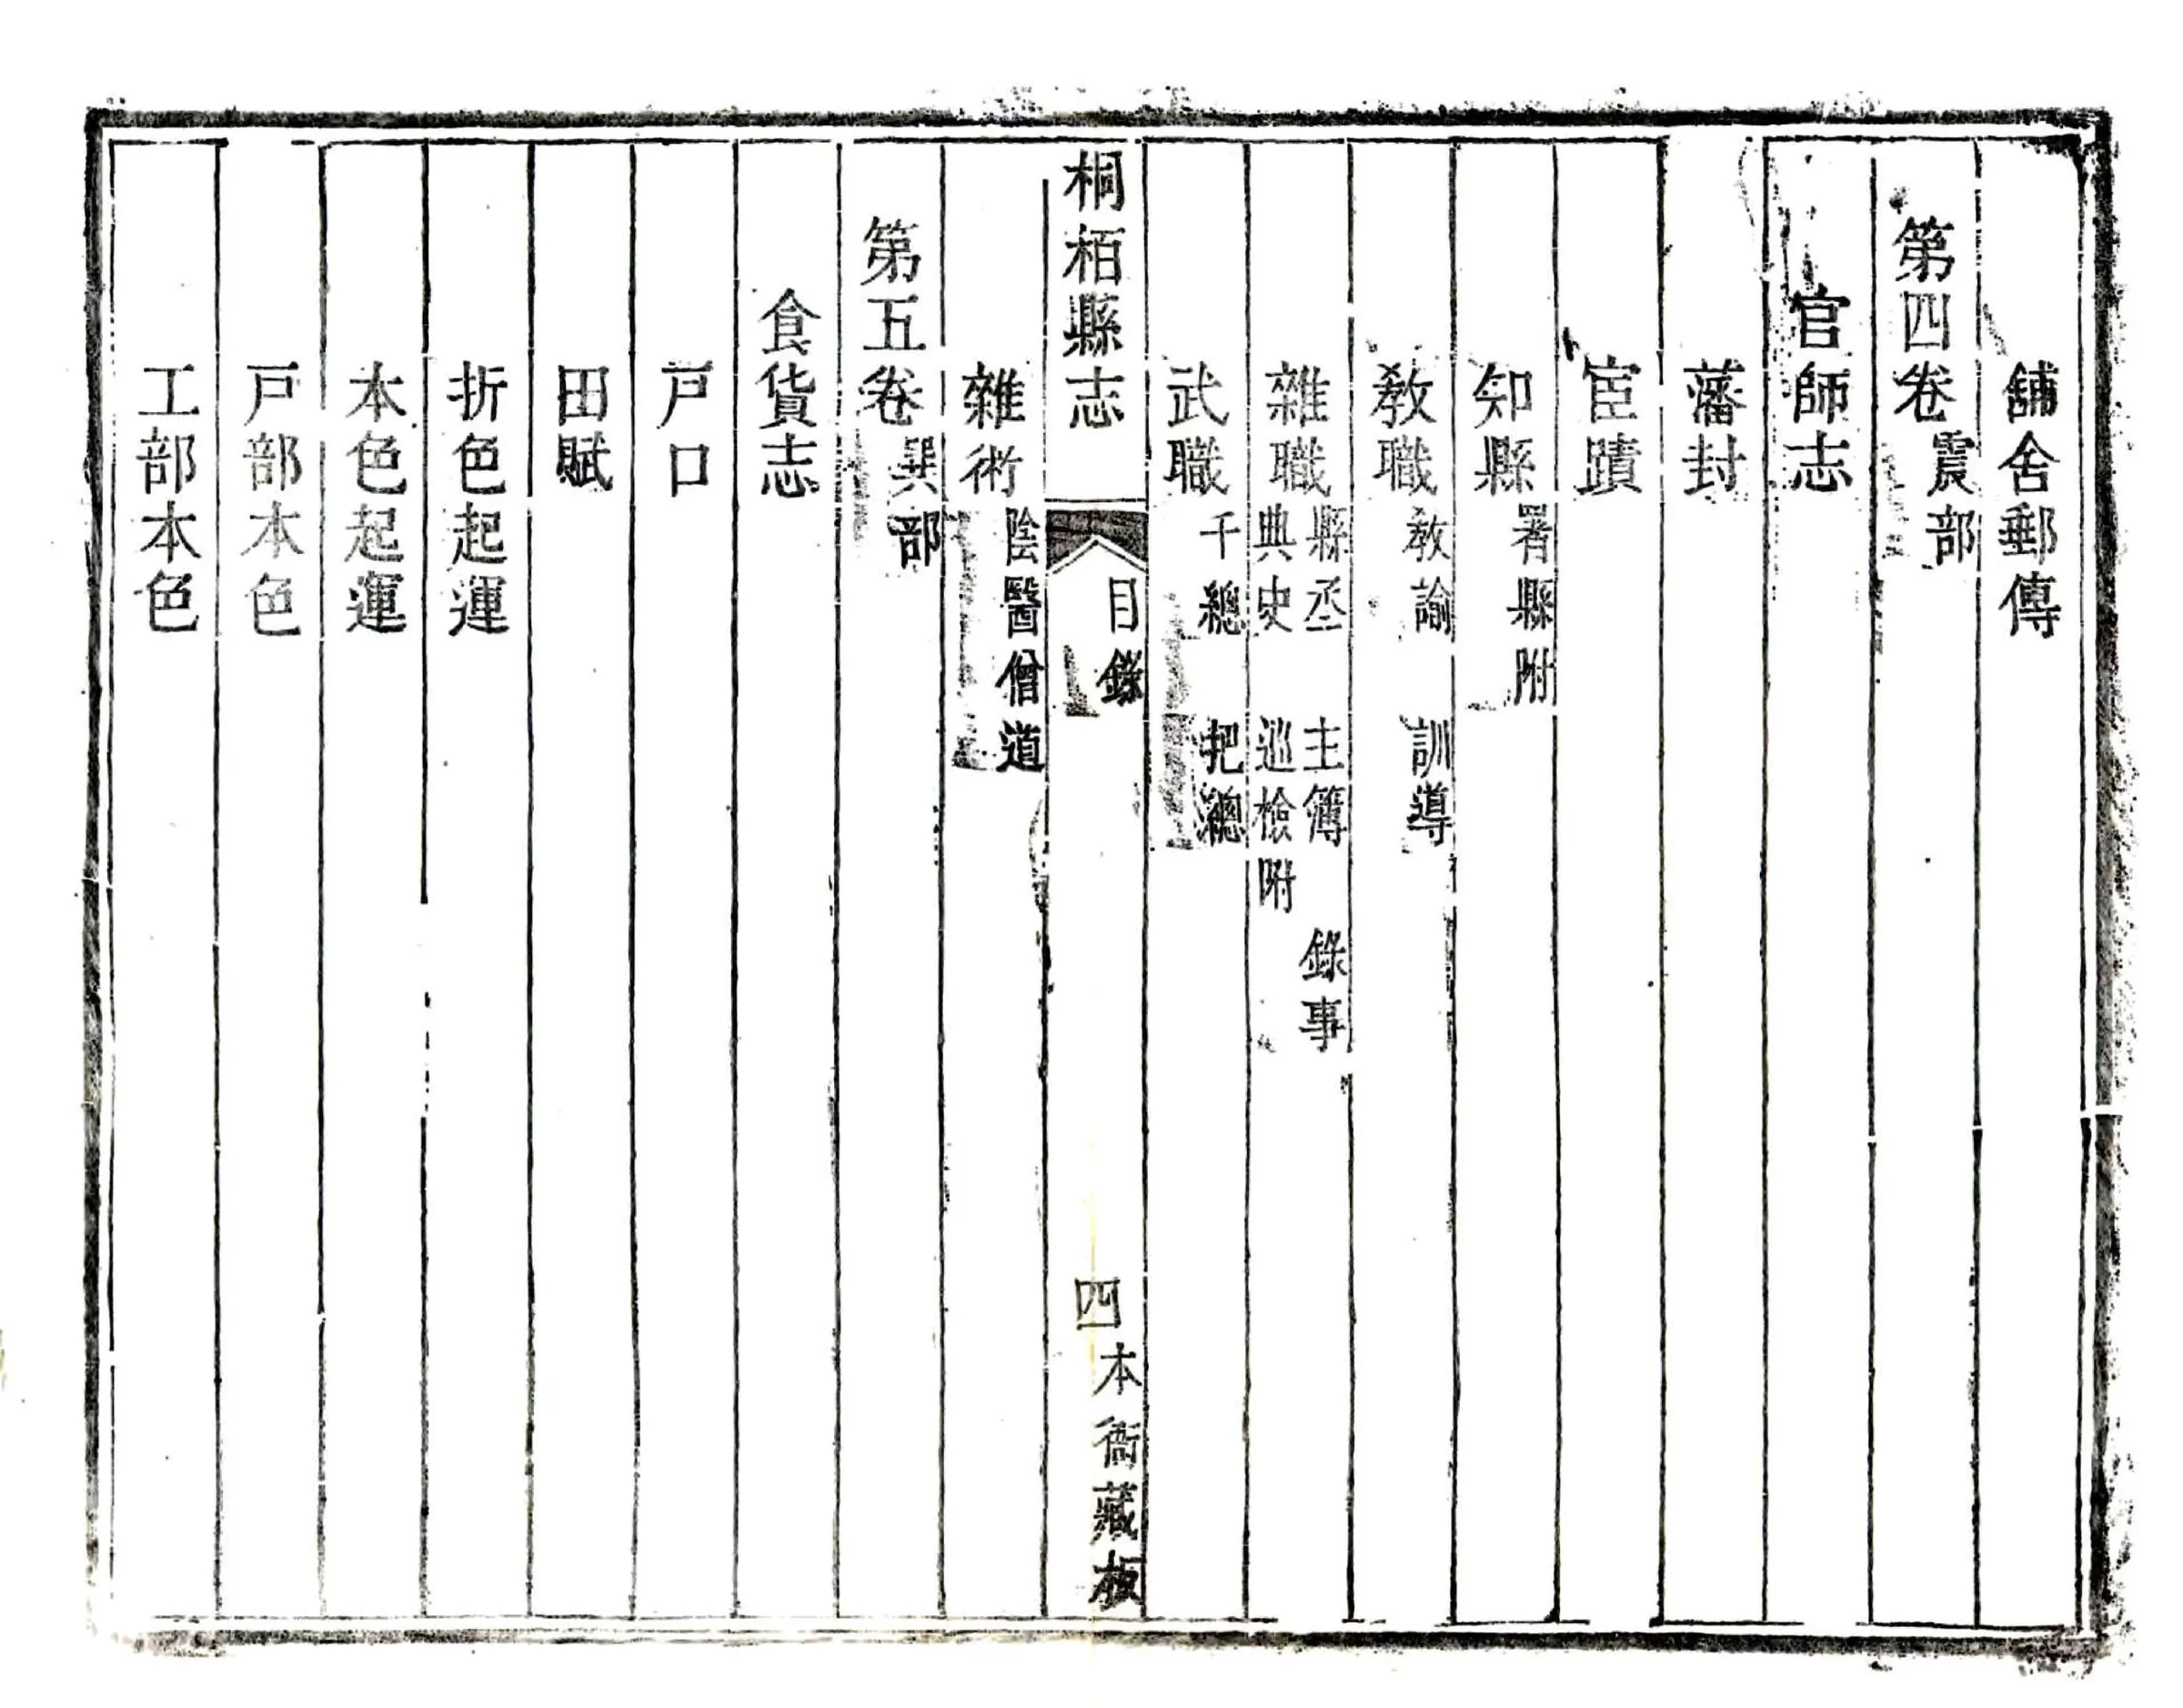 舖舍郵傳
第四卷震部
官師志
藩封
宦蹟
知縣署縣附
教職教諭 訓導
雜職縣丞 主簿 錄事
典史 巡檢附
武職千總 把總
桐栢縣志 目錄 四 本衙藏板
雜術陰醫僧道
第五卷巽部
食貨志
戸口
田賦
折色起運
本色起運
戸部本色
工部本色